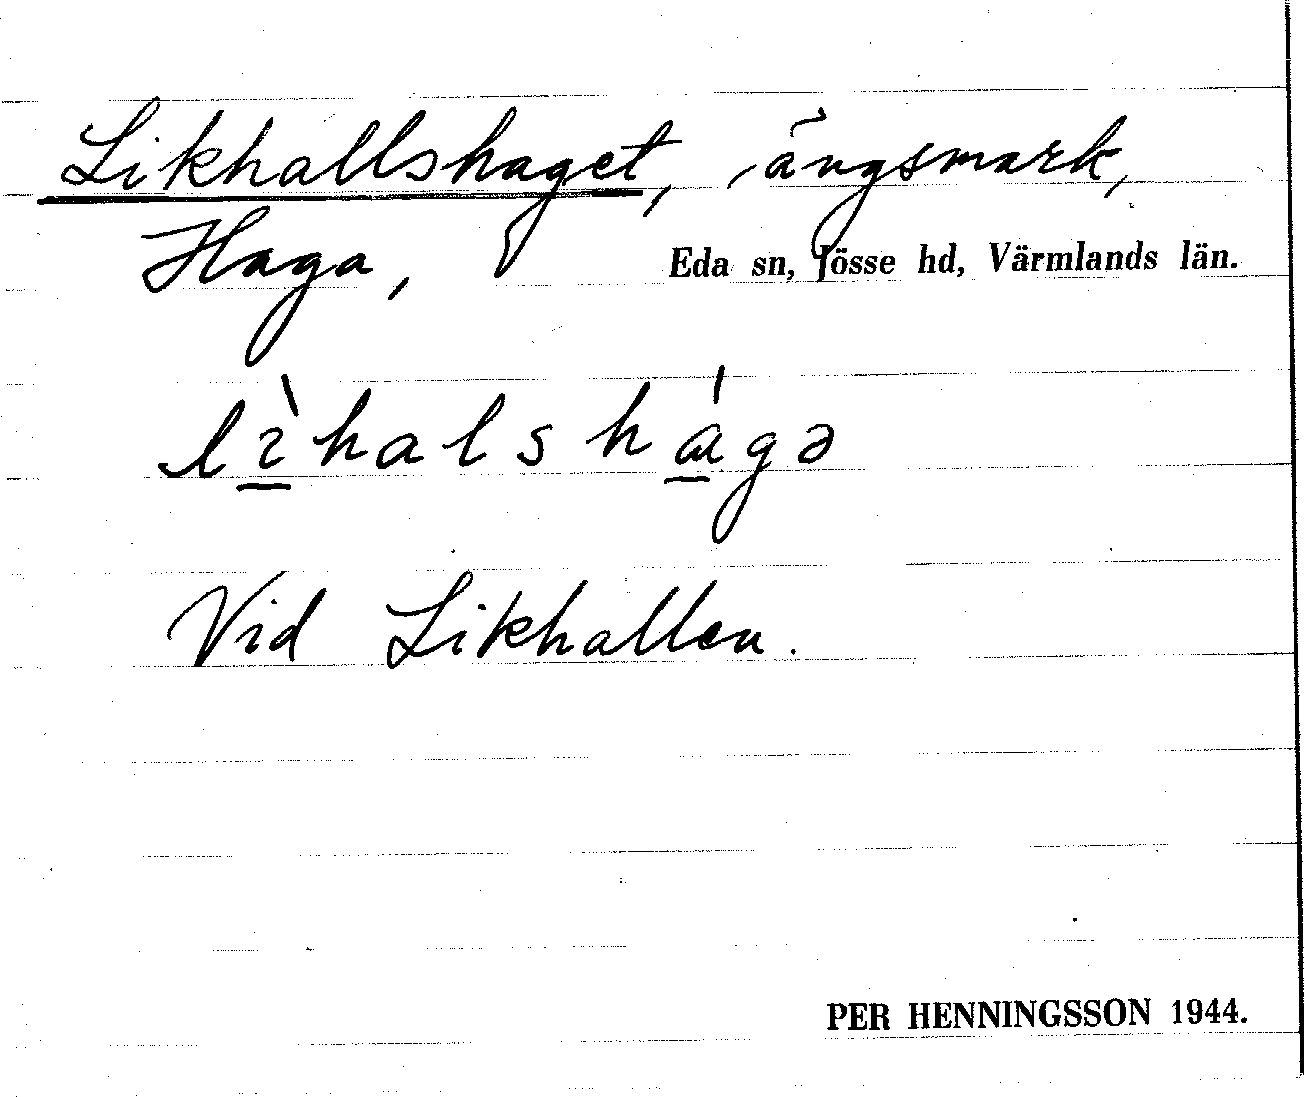 Likhallshaget, ängsmark,
Haga, Eda sn, Jösse hd, Värmlands län.
lìhalshágə
Vid Likhallen.
PER HENNINGSSON 1944.